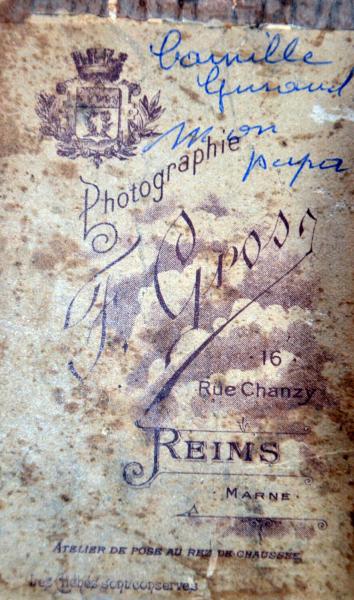 Camille
Guraud
Mon
papa
Photographie
F. Gros
16
Rue Chanzy
REIMS
MARNE
ATELIER DE POSE AU REZ DE CHAUSSÉE
Les Clichés sont conservés